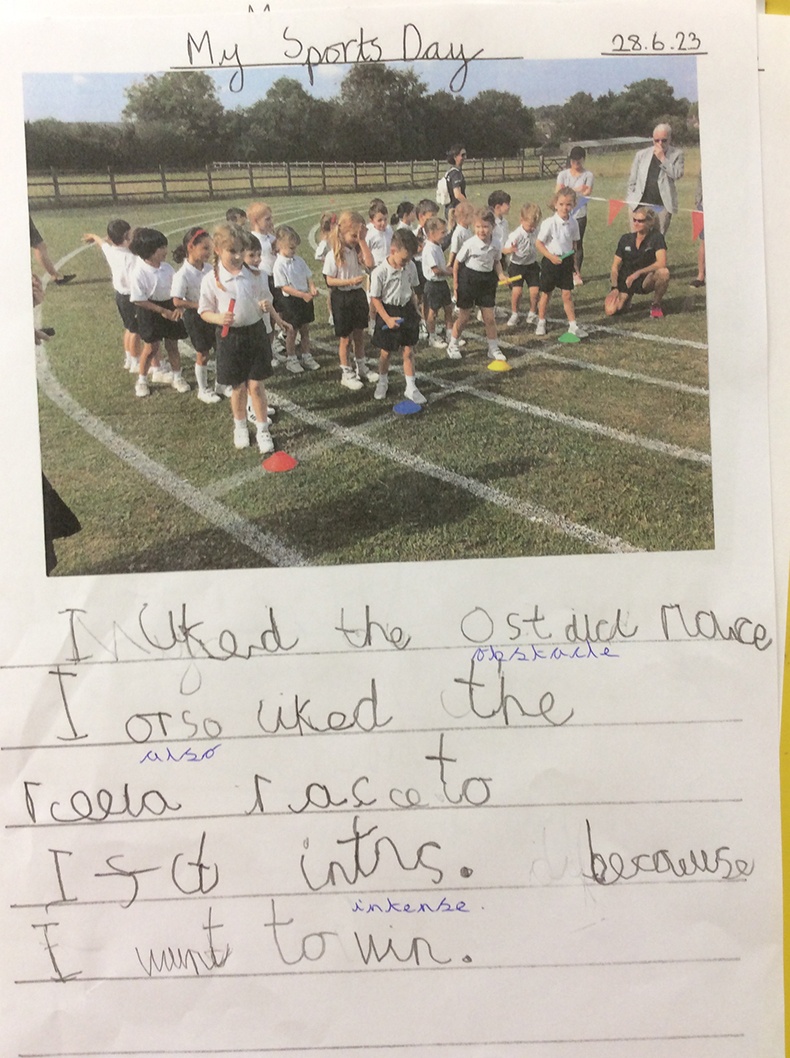 My Sports Day 28.6.23
I liked the Ostucl rarce
obstacle
I orso liked the
also
reela rasce to
I felt intns. because
intense.
I want to win.